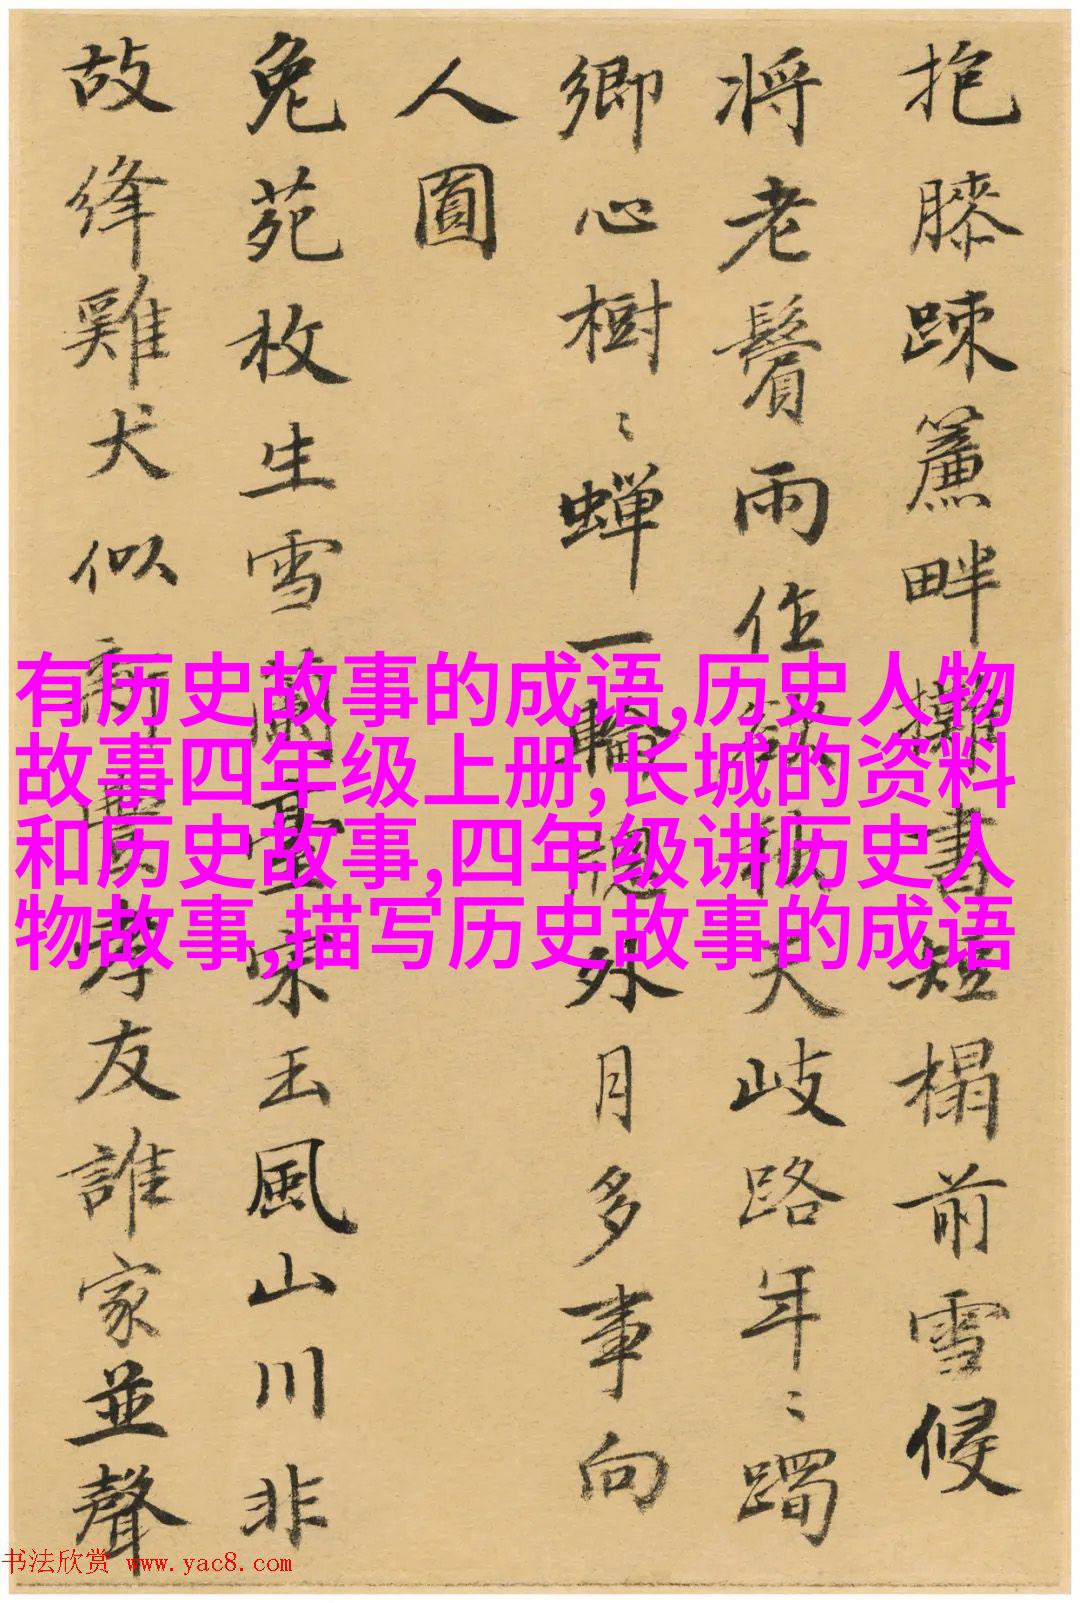 抱膝疎簾畔攤書短榻前雪侵
将老鬢雨作欲秋天岐路年〻躅
鄉心樹〻蟬一輪牕外月多事向
人圓
兔苑枚生雪蘭臺宋玉風山川非
故絳雞犬似新豐孝友誰家並聲
有历史故事的成语,历史人物
故事四年级上册,长城的资料
和历史故事,四年级讲历史人
物故事,描写历史故事的成语
书法欣赏 www.yac8.com